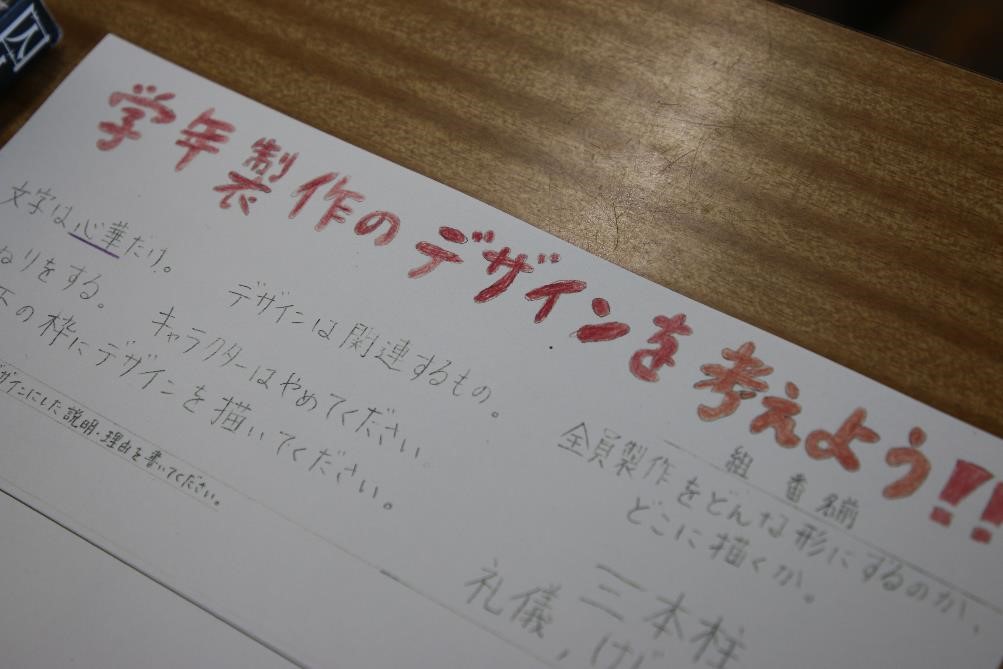 学年製作のデザインを考えよう!!
組 番 名前
文字は心華だけ。
なりをする。
デザインは関連するもの。
キャラクターはやめてください。
下の枠にデザインを描いてください。
デザインにした説明・理由を書いてください。
全員製作をどんな形にするのか、
どこに描くか。
三本柱
礼儀,
囚